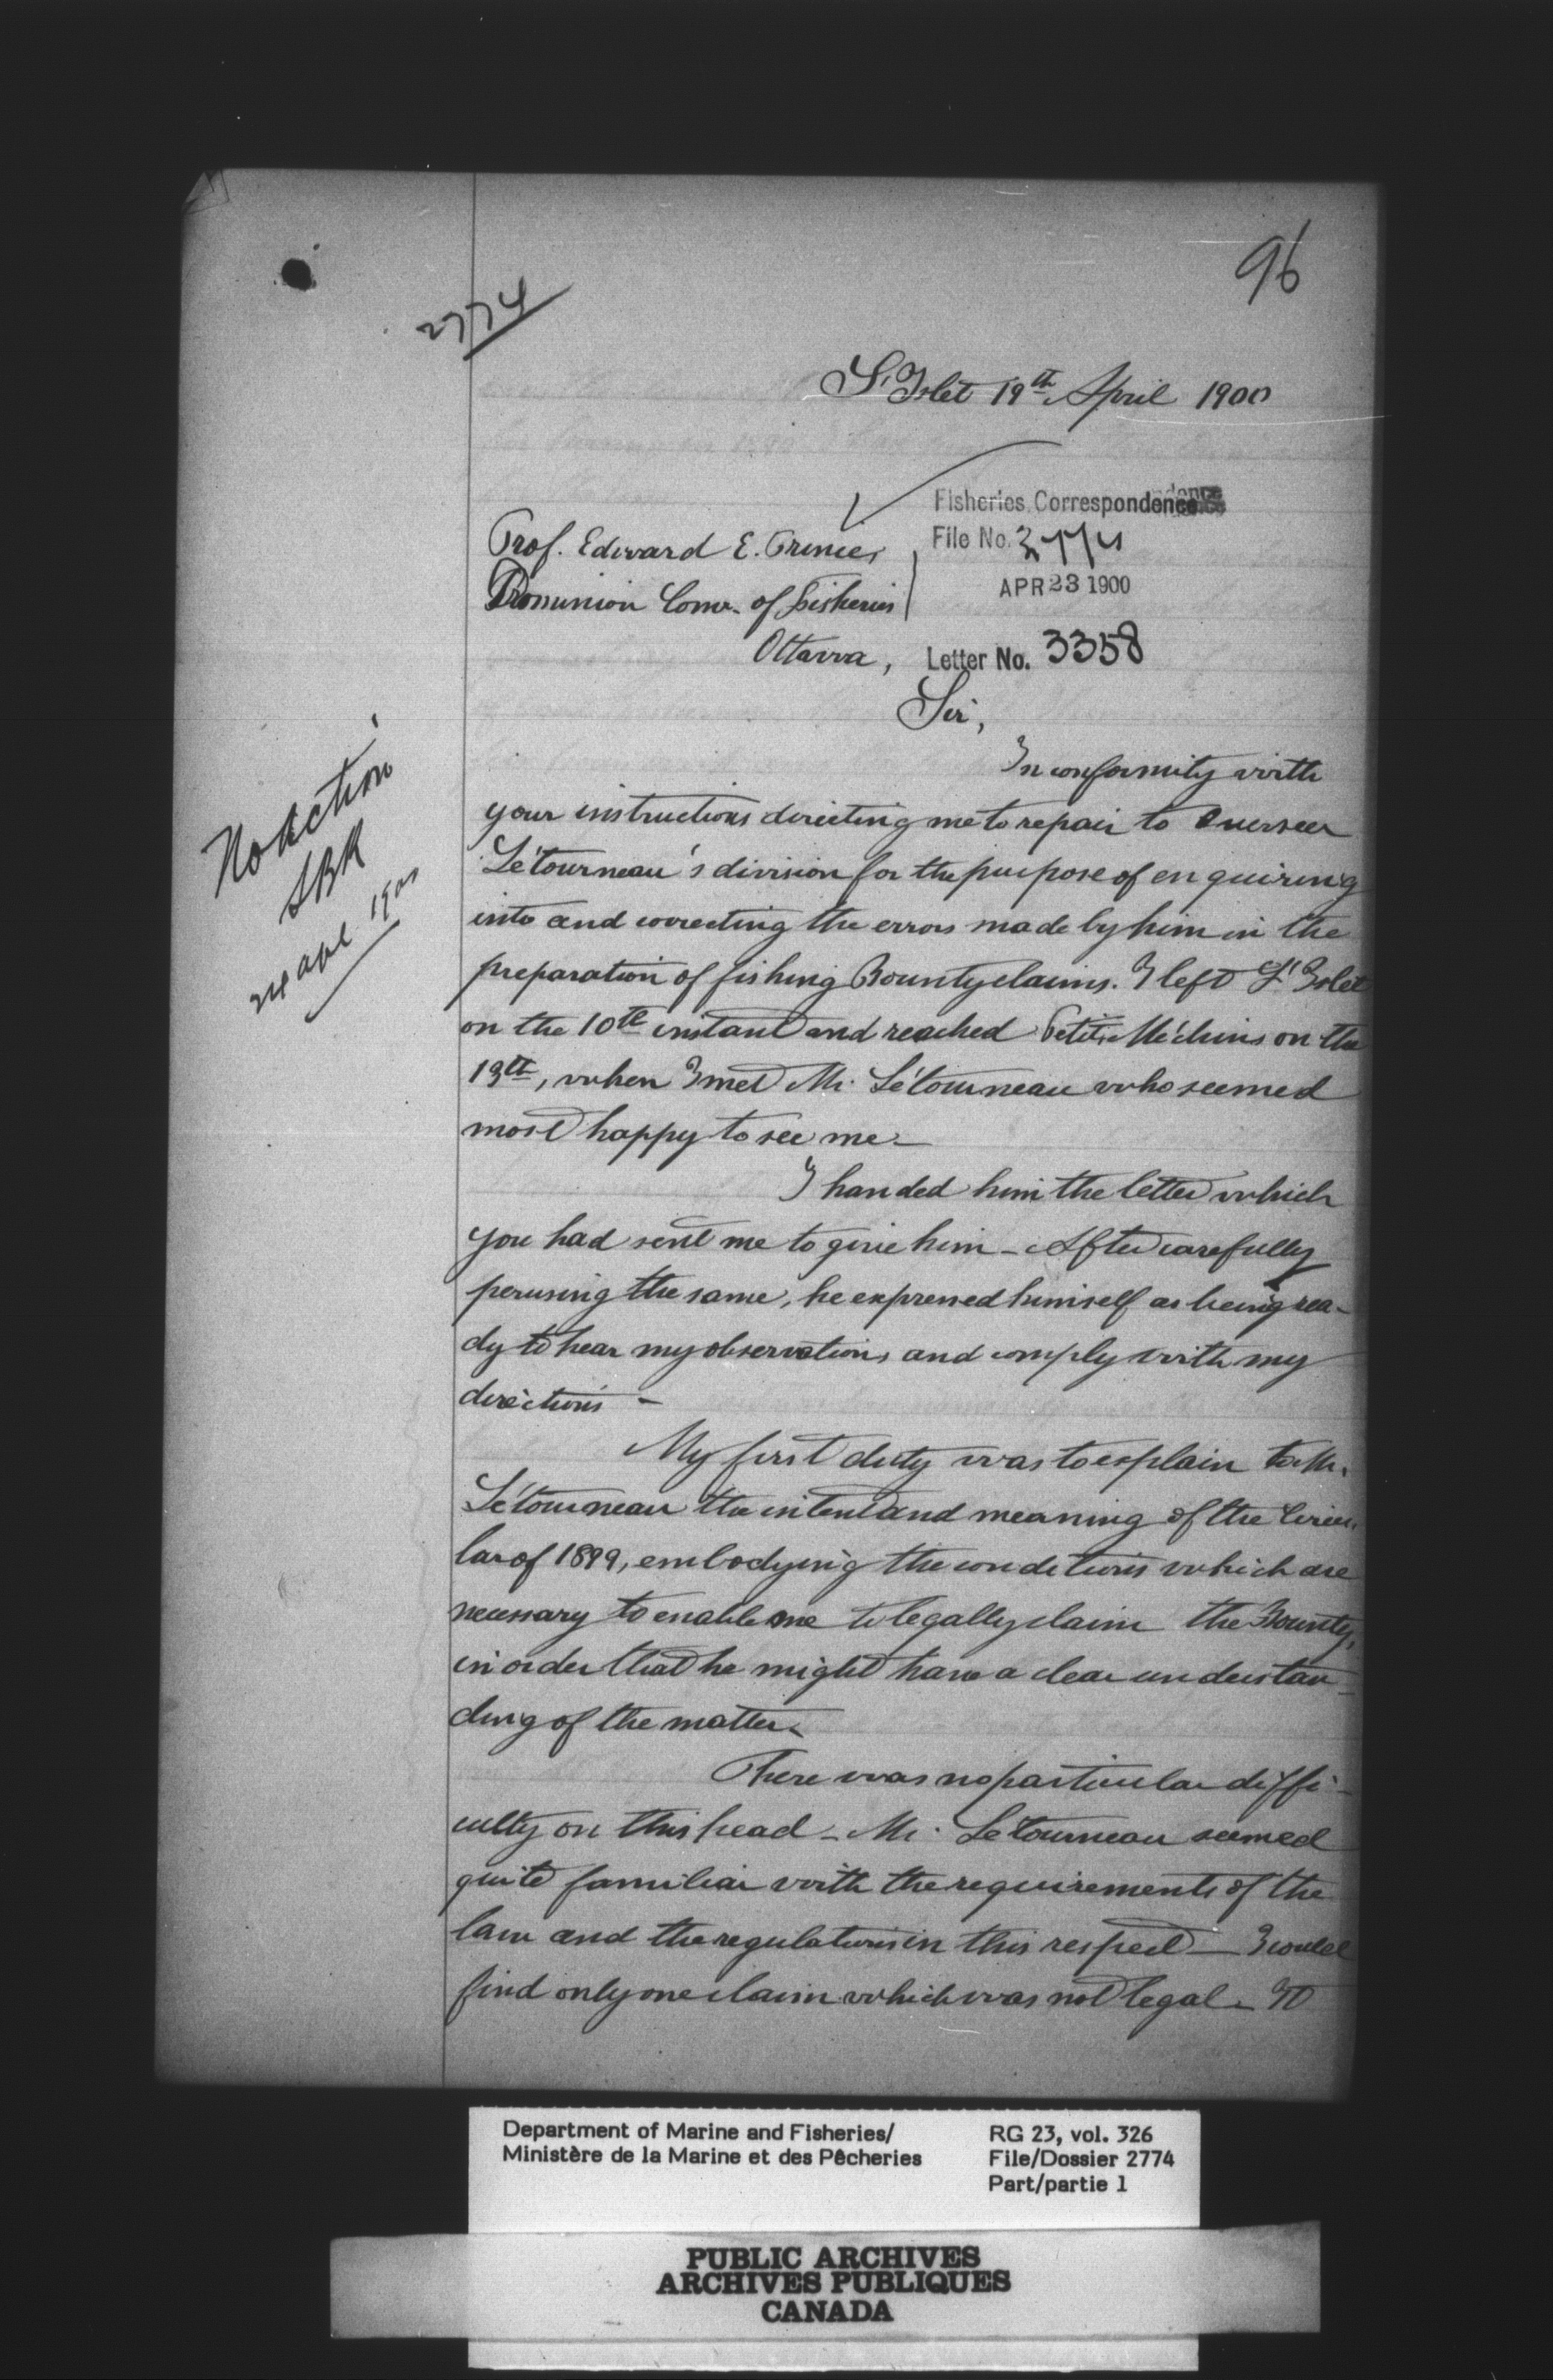 96
2774
L'Islet 19th April 1900
Fisheries Correspondence
File No. 2774
APR 23 1900
Letter No. 3358
Prof. Edward E. Prince,
Dominion Comr. of Fisheries
Ottawa,
Sir,
No Action
24 April 1900
In conformity with
your instructions directing me to repair to Overseer
Létourneau's division for the purpose of enquiring
into and correcting the errors made by him in the
preparation of fishing Bounty claims. I left L'Islet
on the 10th instant and reached Petits Méchins on the
13th, when I met Mr. Létourneau who seemed
most happy to see me -
I handed him the letter which
you had sent me to give him - After carefully
perusing the same, he expressed himself as being rea-
dy to hear my observations and comply with my
directions -
My first duty was to explain to Mr.
Létourneau the intent and meaning of the Circu-
lar of 1899, embodying the conditions which are
necessary to enable one to legally claim the Bounty,
in order that he might have a clear understan-
ding of the matter.
There was no particular diffi-
culty on this head - Mr. Letourneau seemed
quite familiar with the requirements of the
law and the regulations in this respect - I could
find only one claim which was not legal - It
Department of Marine and Fisheries/
Ministère de la Marine et des Pêcheries
RG 23, vol. 326
File/Dossier 2774
Part/partie 1
PUBLIC ARCHIVES
ARCHIVES PUBLIQUES
CANADA